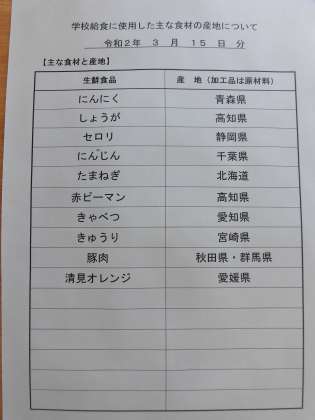 学校給食に使用した主な食材の産地について
令和２年 ３ 月 １５ 日 分
【主な食材と産地】
生鮮食品 産 地（加工品は原材料）
にんにく 青森県
しょうが 高知県
セロリ 静岡県
にんじん 千葉県
たまねぎ 北海道
赤ピーマン 高知県
きゃべつ 愛知県
きゅうり 宮崎県
豚肉 秋田県・群馬県
清見オレンジ 愛媛県